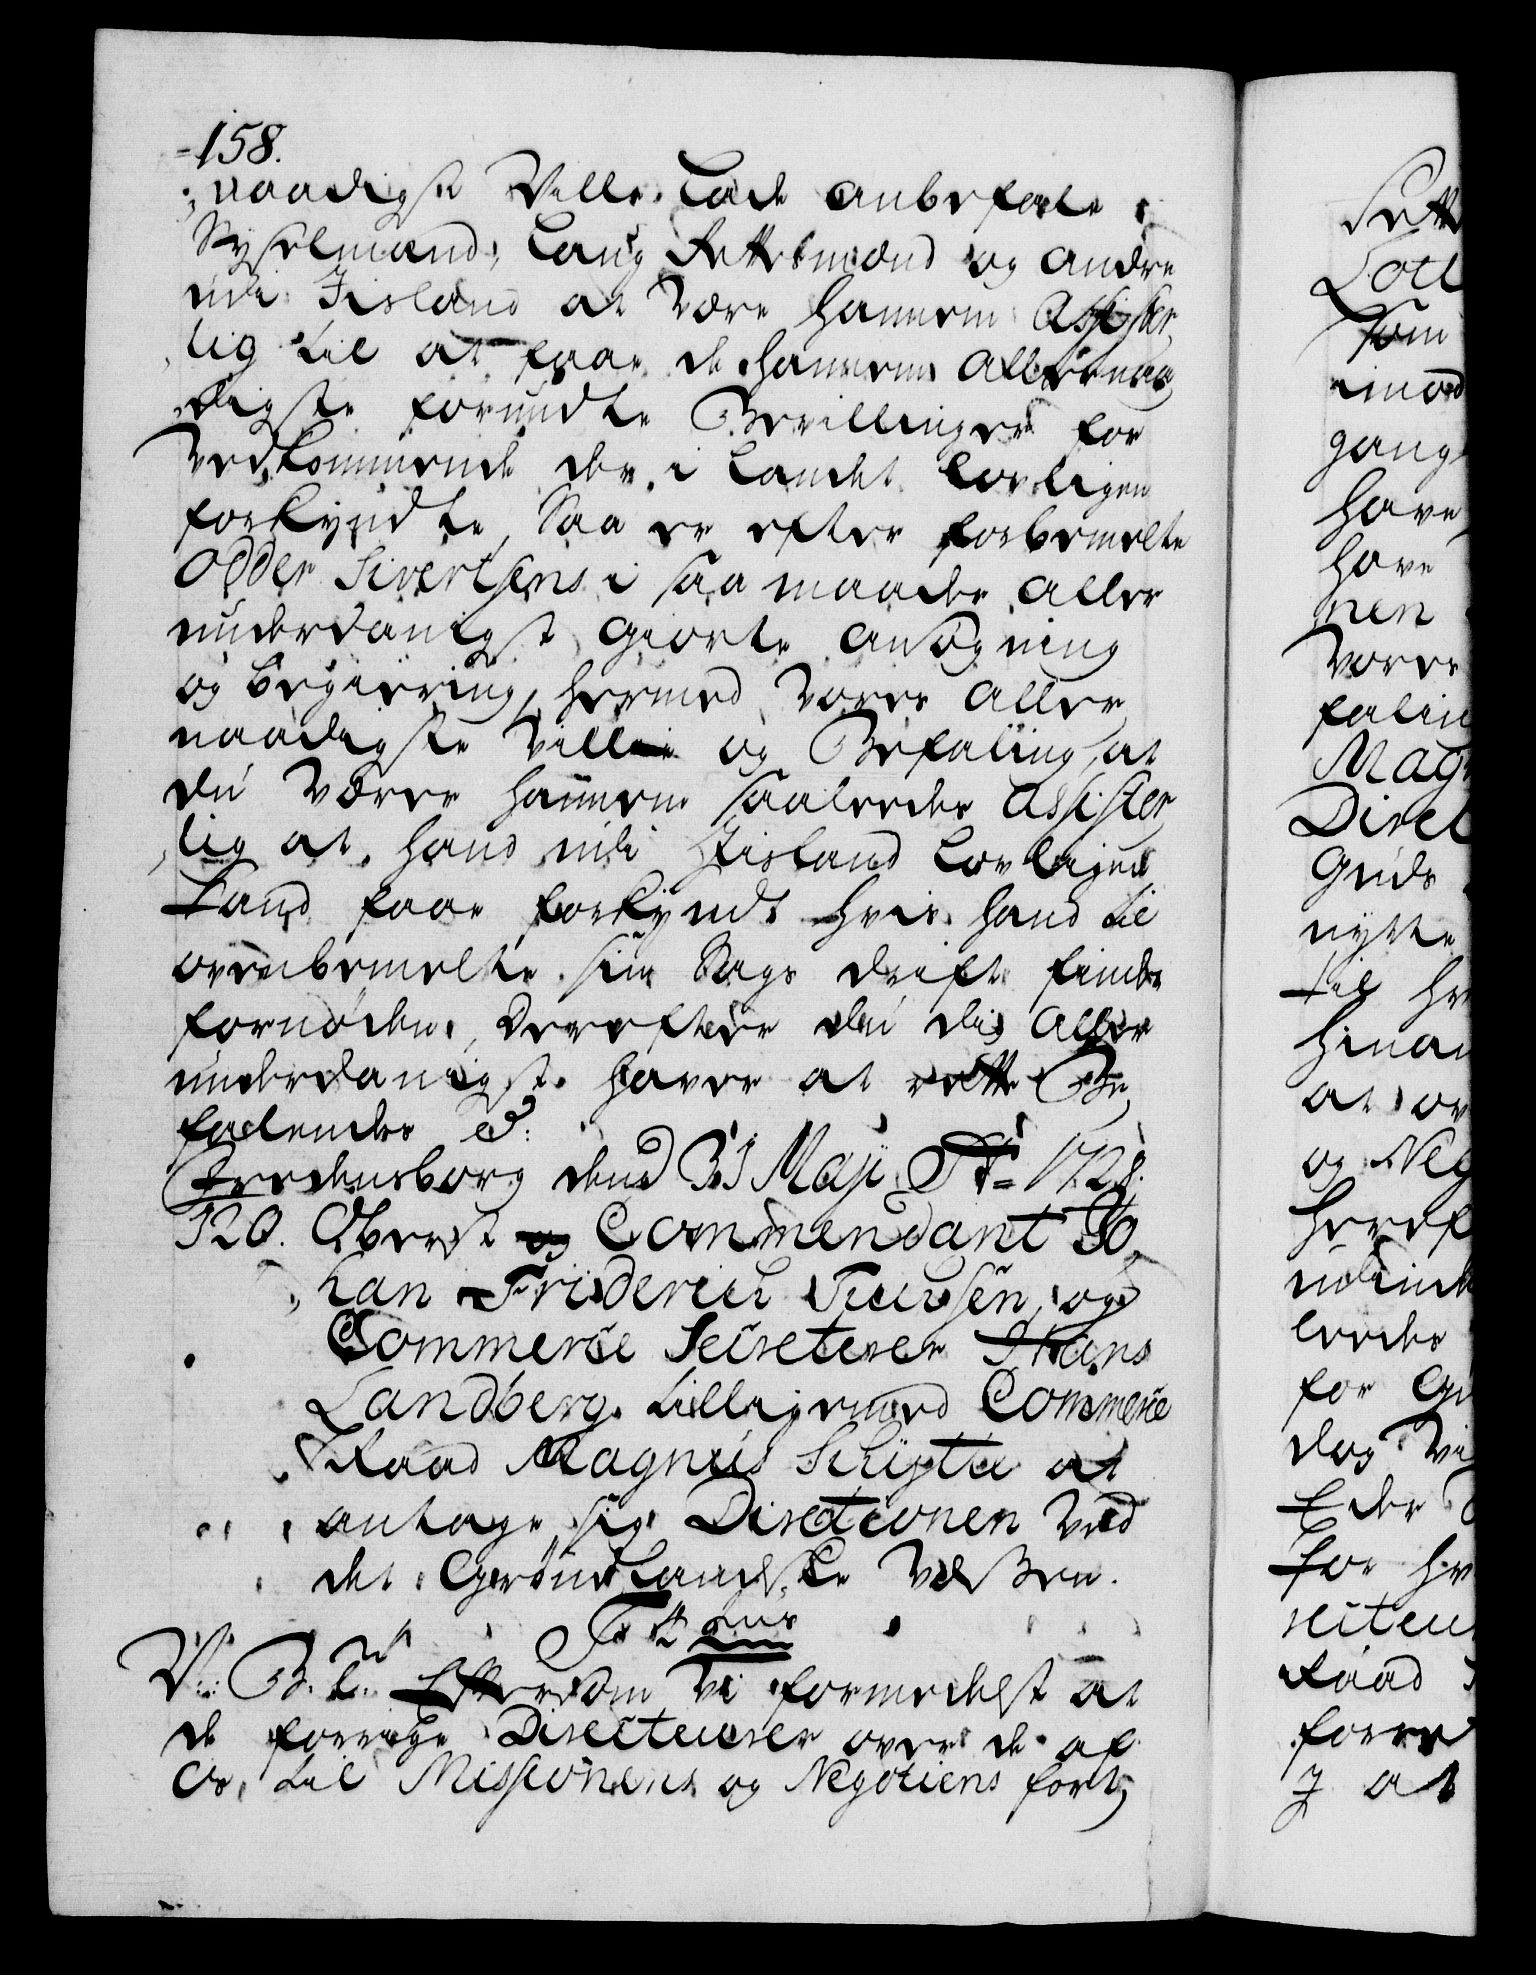 158.
naadigst Ville Lade anbefale
Sysselmænd, Laug Rettesmænd og andre
udi Jisland at være hannem assister
lig til at faae de hannem allernaa
digste forundte Bevillinger for
Vedkommende der i Landet lovligen
forkyndte, Saa er efter forbemelte
Odder Sivertsens i saa maader aller
underdanigst giorte ansøgning
og begiering, hermed Vores aller
naadigste Villie og Befaling, at
du Værer hannem saaleedes assister
lig at hand udi Jisland Lovligen
kand faae forkyndt hvis hand til
ovenbemelte sin Sags drift finder
fornøden, Derefter du dig aller
underdanigst haver at rette Be
falendes &:
Fredensborg dend 31 Maji Ao 1728.
120. Oberst og Commendant Jo
han Friderich Fuursen, og
Commerce Secreterer Hans
Landberg tilligemed Commerce
Raad Magnus Schiøtte at
antage sig Directionen Ved
det Grønlandske Væsen.
F 4tus
V: B. V: Eftersom Vi formedelst at
de forrige Directeurer over de af
Os til Missionens og Negotiens fort
Rette
Som
imod
gang
have
have
nen
Vores
falin
Mag
Direc
Guds
nytte
til he
hinan
at ov
og Neg
heref
udink
leedes
for Gu
dog Vi
Eder
for he
recteu
Raad
forre
J at